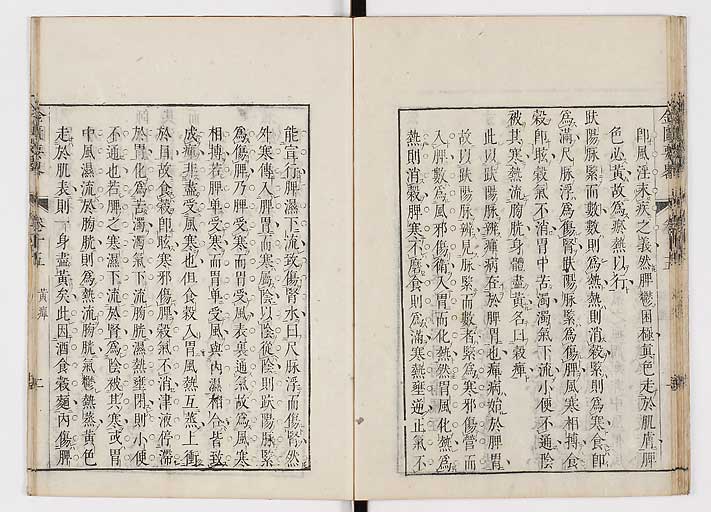 卽風淫末疾之義然脾鬱困極眞色走於肌膚脾
色必黃故爲瘀熱以行
趺陽脉緊而數數則爲熱熱則消穀緊則爲寒食卽
爲滿尺脉浮爲傷腎趺陽脉緊爲傷脾風寒相搏食
穀卽眩穀氣不消胃中苦濁濁氣下流小便不通陰
被其寒熱流膀胱身體盡黃名曰穀癉
此以趺陽脉辨癉病在於脾胃也癉病始於脾胃
故以趺陽脉辨見脉緊而數者緊爲寒邪傷營而
入脾數爲風邪傷衛入胃而化熱然胃風化熱爲
熱則消穀脾寒不磨食則爲滿寒熱壅逆正氣不
能宣行脾濕下流致傷腎水曰尺脉浮而傷腎然
外寒傳入脾胃而寒屬陰以陰從陰則趺陽脉緊
爲傷脾乃脾受寒而胃受風表裏通氣故爲風寒
相搏若脾單受寒而胃單受風與內濕相合皆致
成癉非盡受風寒也但食穀入胃風熱互蒸上衝
於目故食穀卽眩寒邪傷脾穀氣不消津液停滯
於胃化爲苦濁濁氣下流膀胱濕熱壅閉則小便
不通也若脾之寒濕下流於腎爲陰被其寒或胃
中風濕流於膀胱則爲熱流膀胱氣鬱熱蒸黃色
走於肌表則一身盡黃矣此因酒食穀麵內傷脾
金匱要畧
卷十五
黃癉
二